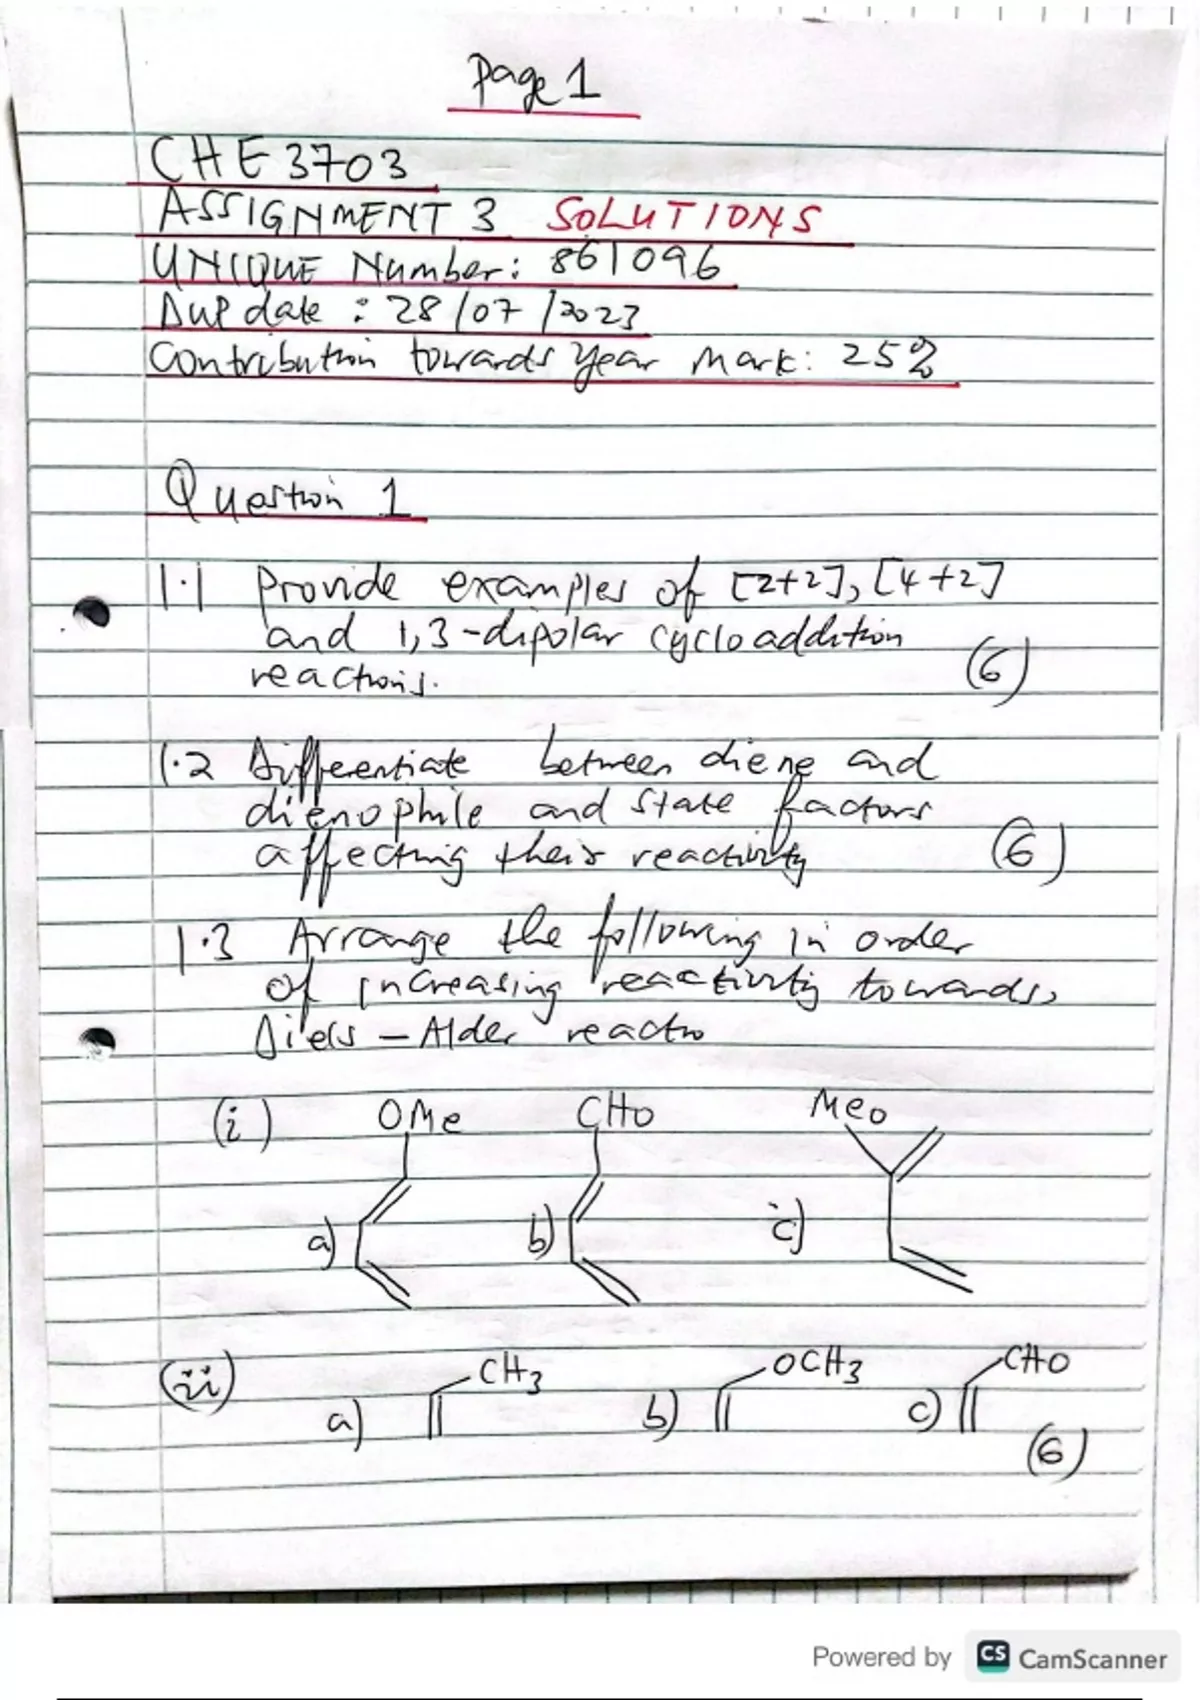 Page 1
CHE3703
ASSIGNMENT 3 SOLUTIONS
UNIQUE Number: 861096
Due date : 28/07/2023
Contribution towards Year Mark: 25%
Question 1
1.1 Provide examples of [2+2], [4+2]
and 1,3-dipolar cycloaddition
reactions. (6)
1.2 Differentiate between diene and
dienophile and state factors
affecting their reactivity (6)
1.3 Arrange the following in order
of increasing reactivity towards
Diels-Alder reactn
(i) OMe CHO MeO
a) b) c)
(ii) a) CH3 b) OCH3 c) CHO
(6)
Powered by CS CamScanner